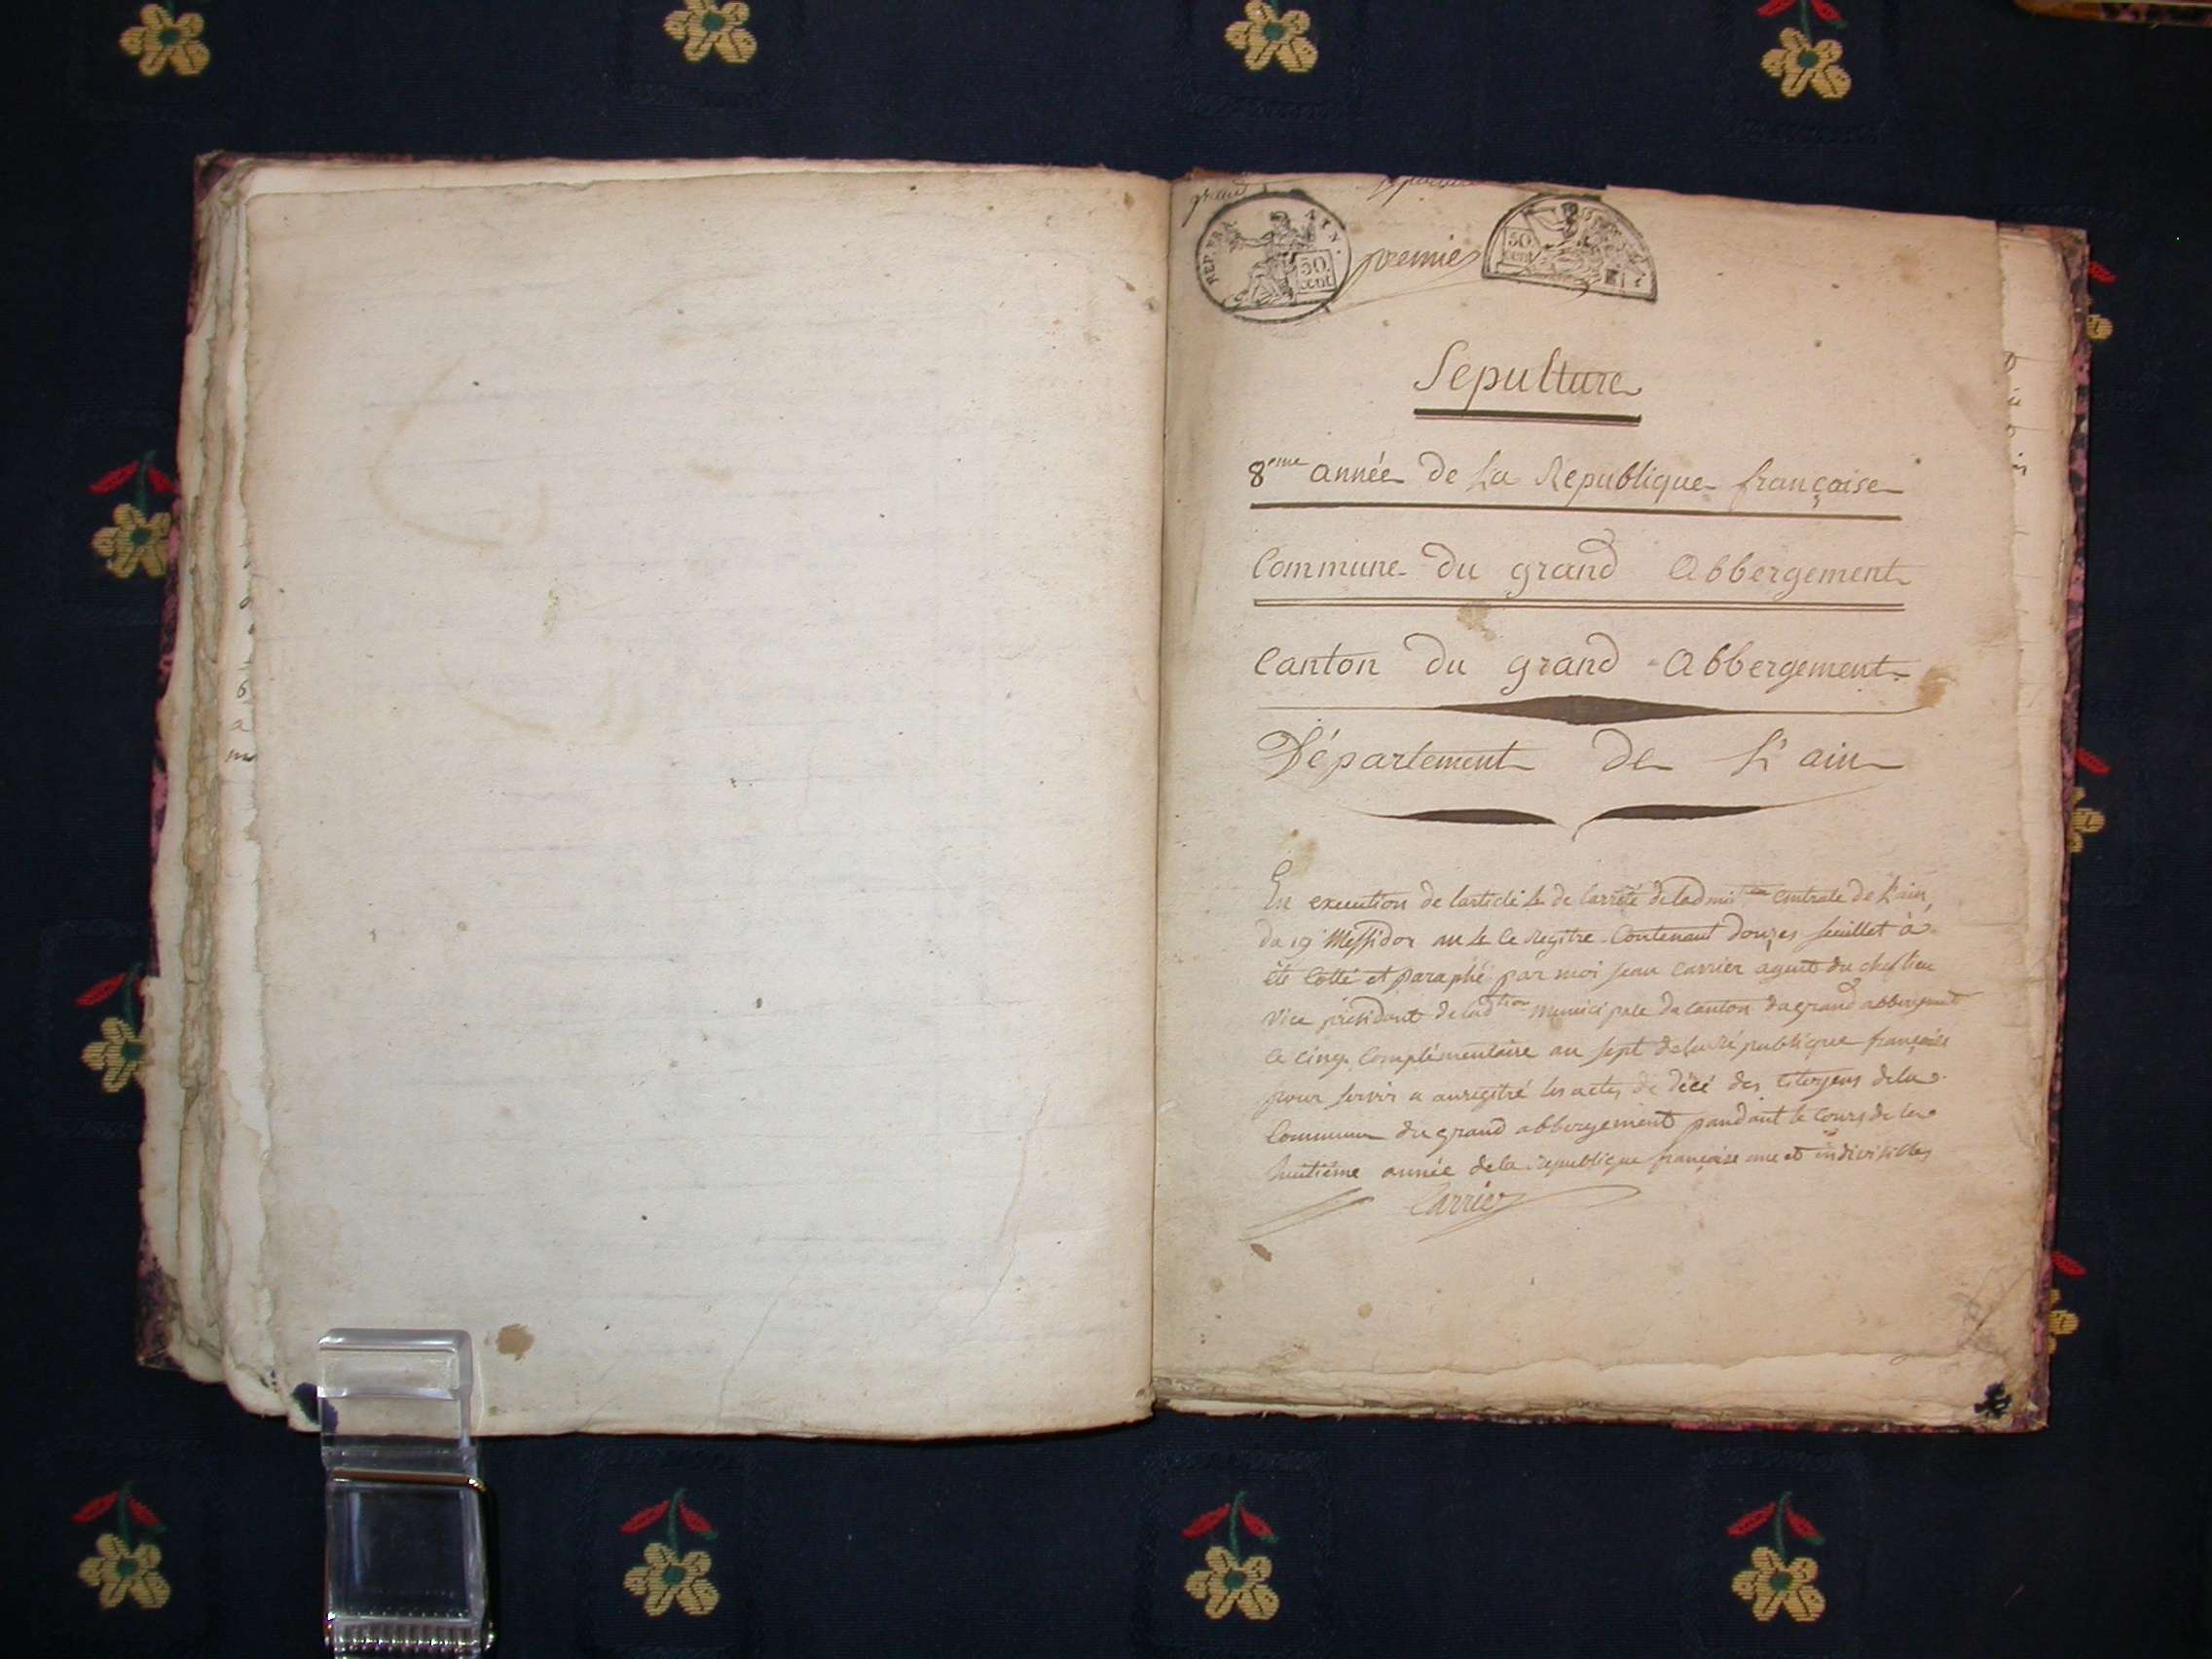 REP. FRA. AIN.
50. cent
premier
50. cent
Sepulture
8eme année de La Republique française
Commune du grand Abbergement
Canton du grand Abbergement.
Département de L'ain
En execution de larticle de larrêté de ladmi centrale de L'ain,
du 19 Messidor an Le Registre Contenant douzes feuillet à
été Cotté et paraphé par moi jean Carrier agent du chef lieu
vice président de ladtion Municipale du Canton du grand abbergement
le cinq. Complémentaire an sept de la république française
pour servir a anregistré les actes de décé des Citoyens de la
Commune du grand abbergement pandant le Cours de la
huitiéme année de la republique française une et indivisible
Carrier